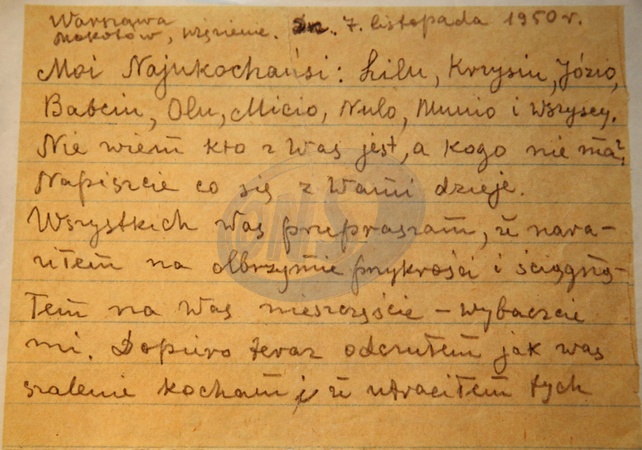 Warszawa
Mokotów, więzienie. Dn. 7. listopada 1950 r.
Moi Najukochańsi: Lilu, Krzysiu, Józio,
Babciu, Olu, Micio, Nulo, Munio i Wszyscy.
Nie wiem kto z Was jest, a kogo nie ma?
Napiszcie co się z Wami dzieje.
Wszystkich Was przepraszam, że nara-
ziłem na olbrzymie przykrości i ściągną-
łem na Was nieszczęście – wybaczcie
mi. Dopiero teraz odczułem jak was
szalenie kocham i że utraciłem tych